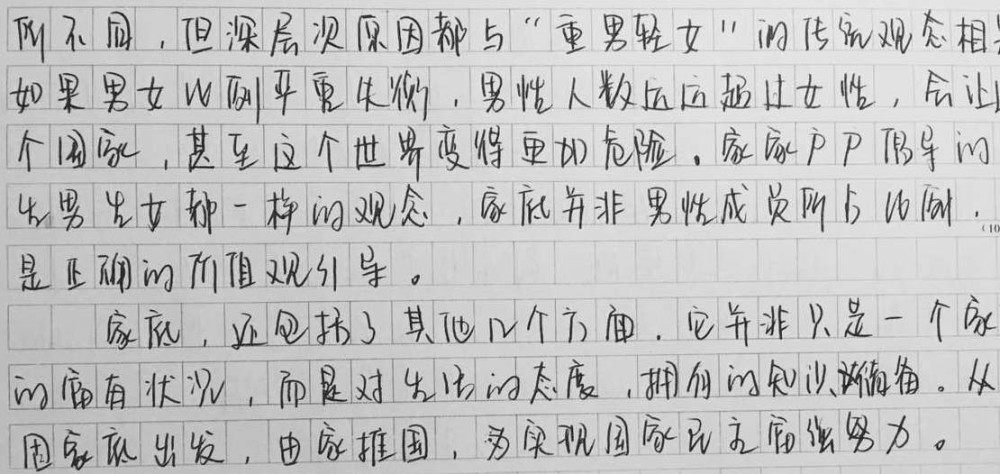 所不同，但深层次原因都与“重男轻女”的传统观念相关
如果男女比例严重失衡，男性人数远远超过女性，会让
个国家，甚至这个世界变得更加危险。家家户户倡导的
生男生女都一样的观念，家底并非男性成员所占比例，
(10
是正确的价值观引导。
家底，还包括了其他几个方面，它并非只是一个家
的富有状况，而是对生活的态度，拥有的知识储备。从
因家底出发，由家推国，为实现国家民主富强努力。